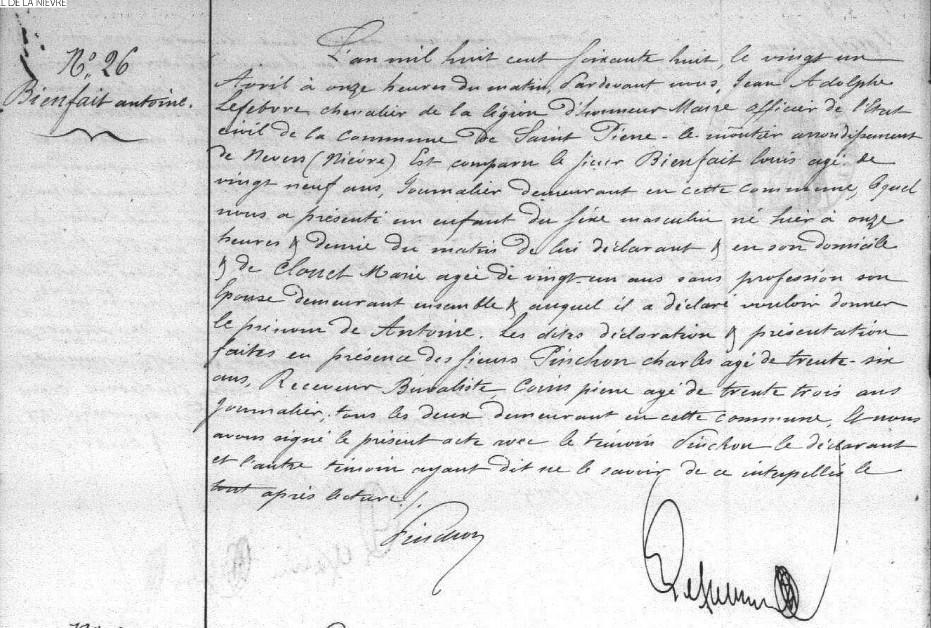 L DE LA NIÈVRE
N.º 26
Bienfait antoine.
L'an mil huit cent soixante huit, le vingt un
Avril à onze heures du matin, Pardevant nous, Jean Adolphe
Lefebvre chevalier de la légion d'honneur Maire officier de l'État
civil de la commune De Saint Pierre-le moutier arrondissement
de Nevers (Nièvre) Est comparu le sieur Bienfait louis agé de
vingt neuf ans, Journalier demeurant en cette commune, lequel
nous a présenté un enfant du sexe masculin né hier à onze
heures & demie du matin de lui déclarant & en son domicile
& de Marie agée de vingt-un ans sans profession son
épouse demeurant ensemble & auquel il a déclaré vouloir donner
le prénom de Antoine. Les dites déclaration & présentation
faites en présence des sieurs Pinchon charles agé de trente-six
ans, Receveur Buraliste, pierre agé de trente trois ans
Journalier, tous les deux demeurant en cette commune, Et nous
avons signé le présent acte avec le témoin Pinchon le déclarant
et l'autre témoin ayant dit ne le savoir de ce interpellés le
tout après lecture /.
Pinchon
Lefebvre